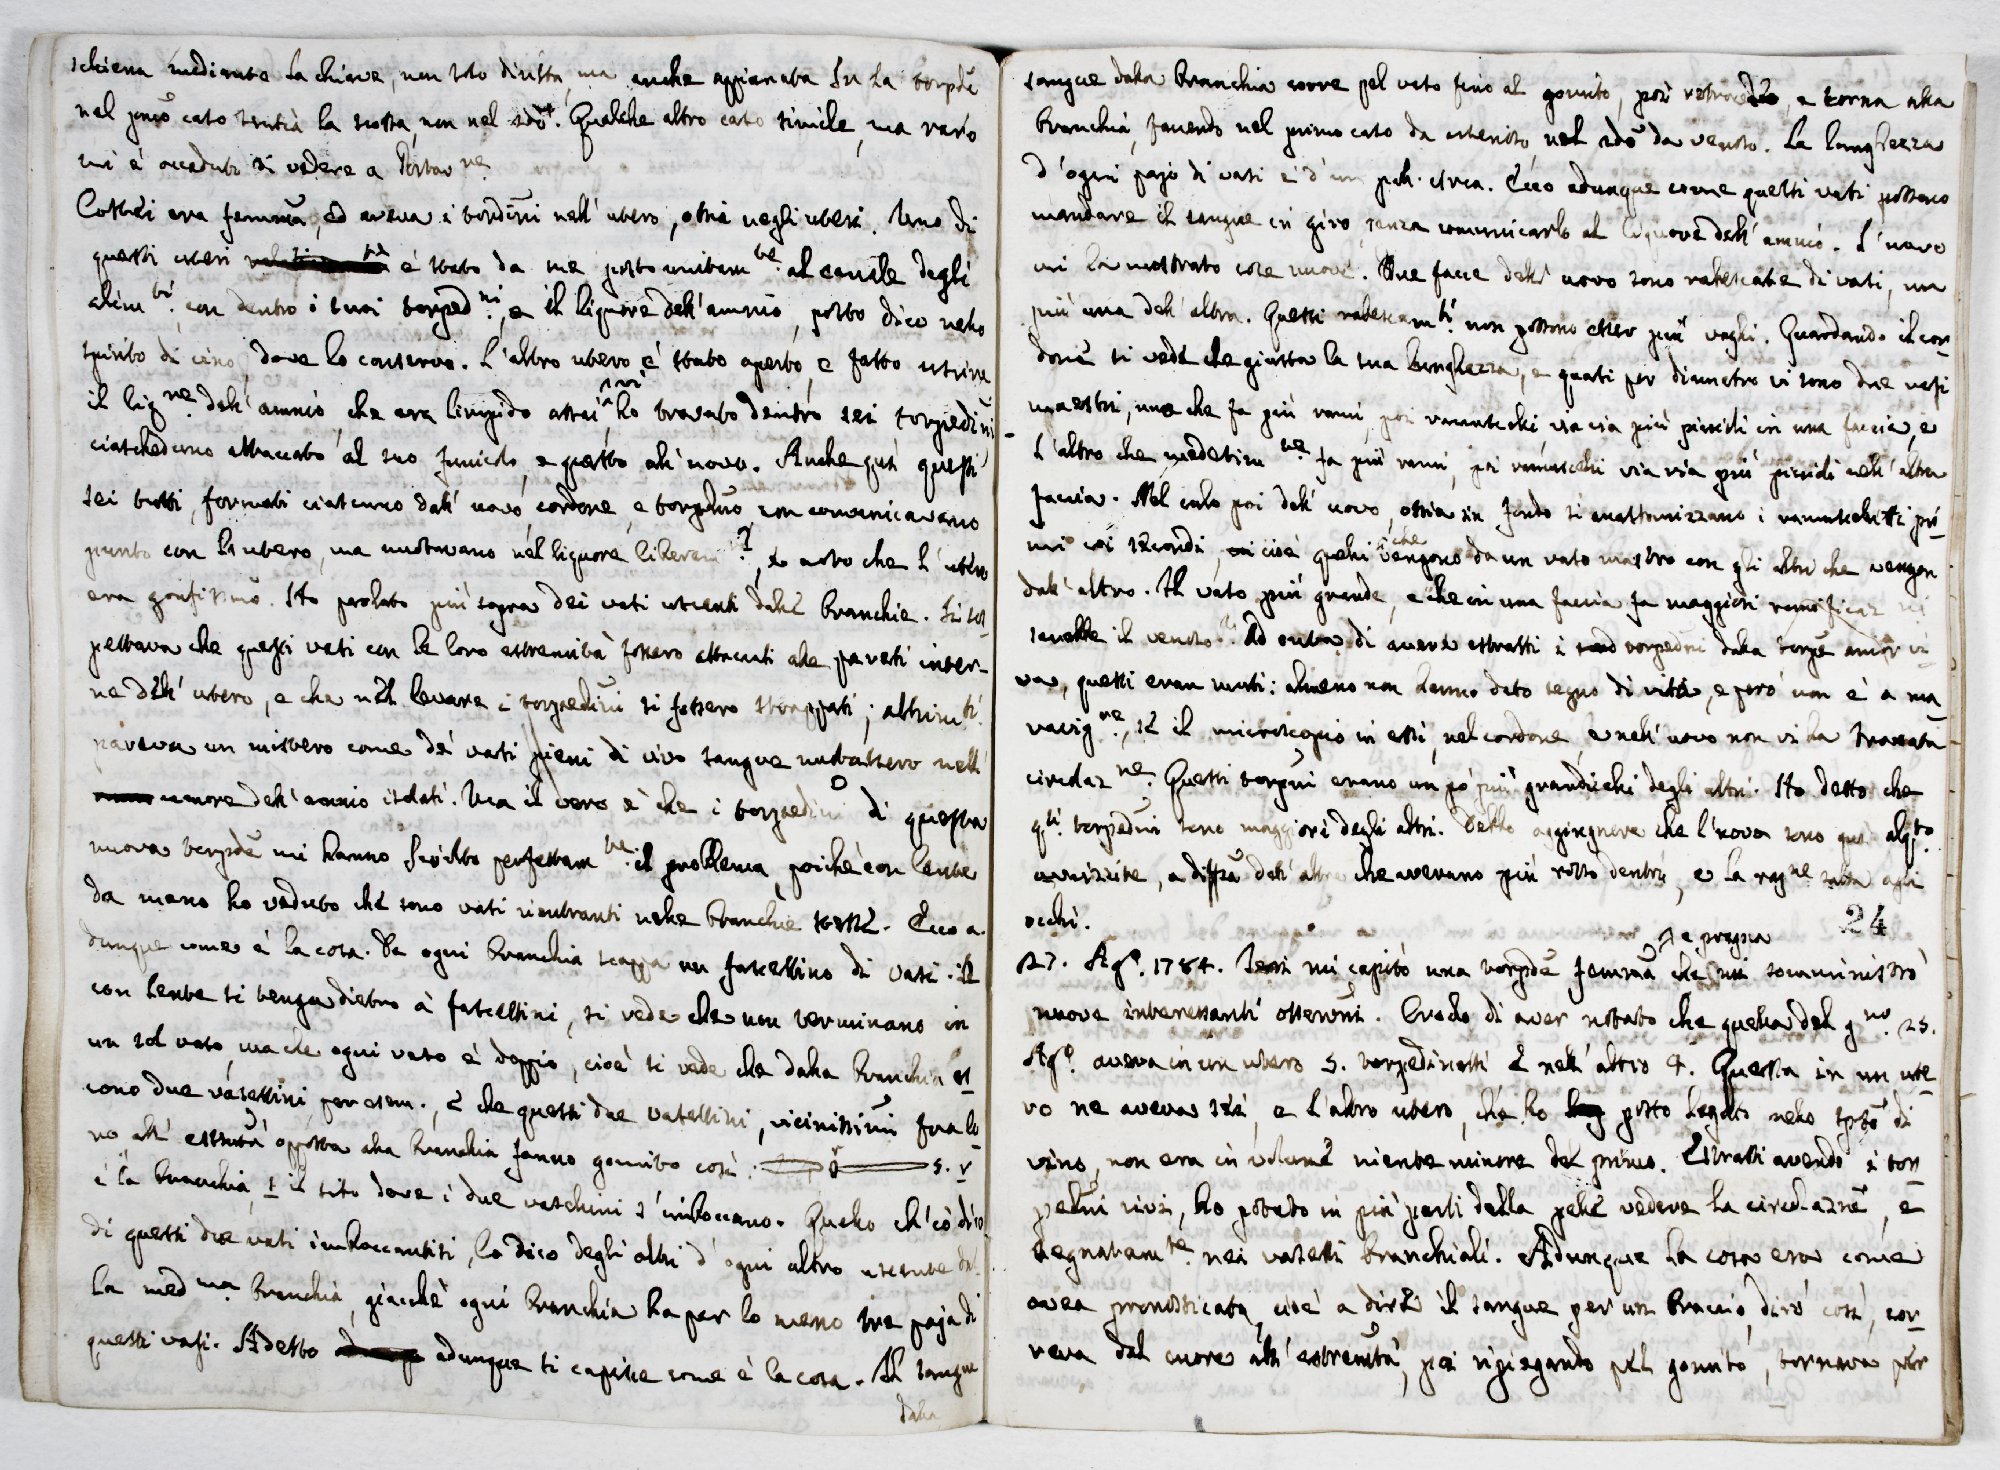 schiena mediante la chiave, non solo diritta, ma anche appianata su la torpde
nel pmo caso sentia la scossa, non nel sdo. Qualche altro caso simile, ma raro
mi è acceduto di vedere a
Costei era femma, ed aveva i tordini nell'utero, ossia negli uteri. Uno di
questi uteri è stato da me posto unitamte al canale degli
alimti, con dentro i suoi torpedni, e il liquore dell'amnio, posto dico nello
spirito di vino, dove lo conservo. L'altro utero è stato aperto, e fatto uscire
il liqre dell'amnio, che era limpido assai, ivi ho trovato dentro sei torpedini
ciascheduno attaccato al suo funicolo, e questo all'uovo. Anche qui questi
sei tutti, formati ciascuno dall'uovo, cordone, e torpedino non comunicavano
punto con l'utero, ma nuotavano nel liquore liberamte, e noto che l'utero
era gonfissimo. Ho parlato più sopra dei vasi uscenti dalle branchie. Si sos-
pettava che questi vasi con le loro estremità fossero attaccati alle pareti inter-
ne dell'utero, e che nel levare i torpedini si fossero strappati; altrimti
pareva un mistero come de' vasi pieni di vivo sangue nuotassero nell'
umore dell'amnio isolati. Ma il vero è che i torpedini di questa
nuova torpde mi hanno sciolto perfettamte il problema, poichè con lente
da mano ho veduto che sono vasi rientranti nelle branchie stesse. Ecco a-
dunque come è la cosa. Da ogni branchia scappa un fascettino di vasi. Se
con lente si tenga dietro a' fascettini, si vede che non terminano in
un sol vaso, ma che ogni vaso è doppio, cioè si vede che dalla branchia es-
cono due vasettini, per esem., e che questi due vasettini, vicinissimi fra lo-
ro all'estmità opposta alla branchia fanno gomito così: s. r
è la branchia, s il sito dove i due vaschini s'imboccano. Quello ch'io dico
di questi due vasi imboccantisi, lo dico degli altri d'ogni altro uscente dal-
la medma branchia, giacchè ogni branchia ha per lo meno tre paja di
questi vasi. Adesso adunque si capisce come è la cosa. Il sangue
dalla
sangue dalla branchia corre pel vaso fino al gomito, poi retrocede, e torna alla
branchia, facendo nel primo caso da arterioso nel sdo da venoso. La lunghezza
d'ogni pajo di vasi è d'un poll. circa. Ecco adunque come questi vasi possono
mandare il sangue in giro, senza comunicarlo al liquore dell'amnio. L'uovo
mi ha mostrato cose nuove. Due facce dell'uovo sono rabescate di vasi, ma
più una dell'altra. Questi rabescamti non possono esser più vaghi. Guardando il cor-
done si vede che giusta la sua lunghezza, e quasi per diametro vi sono due vasi
maestri, uno che fa più rami, poi ramuscelli via via più piccoli in una faccia, e
l'altro che medesimamne fa più rami, poi ramuscelli via via più piccoli nell'altra
faccia. Nel culo poi dell'uovo, ossia in fondo si anastomizzano i ramuscelletti pri-
mi coi secondi, cioè quelli che vengono da un vaso mastro con gli altri che vengon
dall'altro. Il vaso più grande, e che in una faccia fa maggiori ramificazni
sarebbe il venoso? Ad onta di avere estratti i torpedni dalla torpe ancor vi-
va, questi eran morti: almeno non hanno dato segno di vita, e però non è a ma
raviglre, se il microscopio in essi, nel cordone, e nell'uovo non vi ha trovata
circolazne. Questi torpini erano un pò più grandicelli degli altri. Ho detto che
qti torpedini sono maggiori degli altri. Debbo aggiugnere che l'uova sono qui alqto
avvizzite, a diffza dell'altre che avevano più rosso dentro, e la ragne agli
occhi.
24
27. Agto. 1784. Ieri mi capitò una torpde femma, e pregna che mi somministrò
nuove interessanti osservni. Credo di aver notato che quella del gno 25.
Agto. aveva in un utero 5. torpedinetti e nell'altro 4. Questa in un ute-
ro ne aveva sei, e l'altro utero, che ho posto legato nello spto di
vino, non era in volume niente minore del primo. Estratti avendo i tor-
pedini vivi, ho potuto in più parti della pelle vedere la circolazne, e
segnatamte nei vasetti branchiali. Adunque la cosa era come
avea pronosticata, cioè a dire il sangue per un braccio, dirò così, cor-
reva dal cuore all'estremità, poi ripiegando pel gomito, tornava per